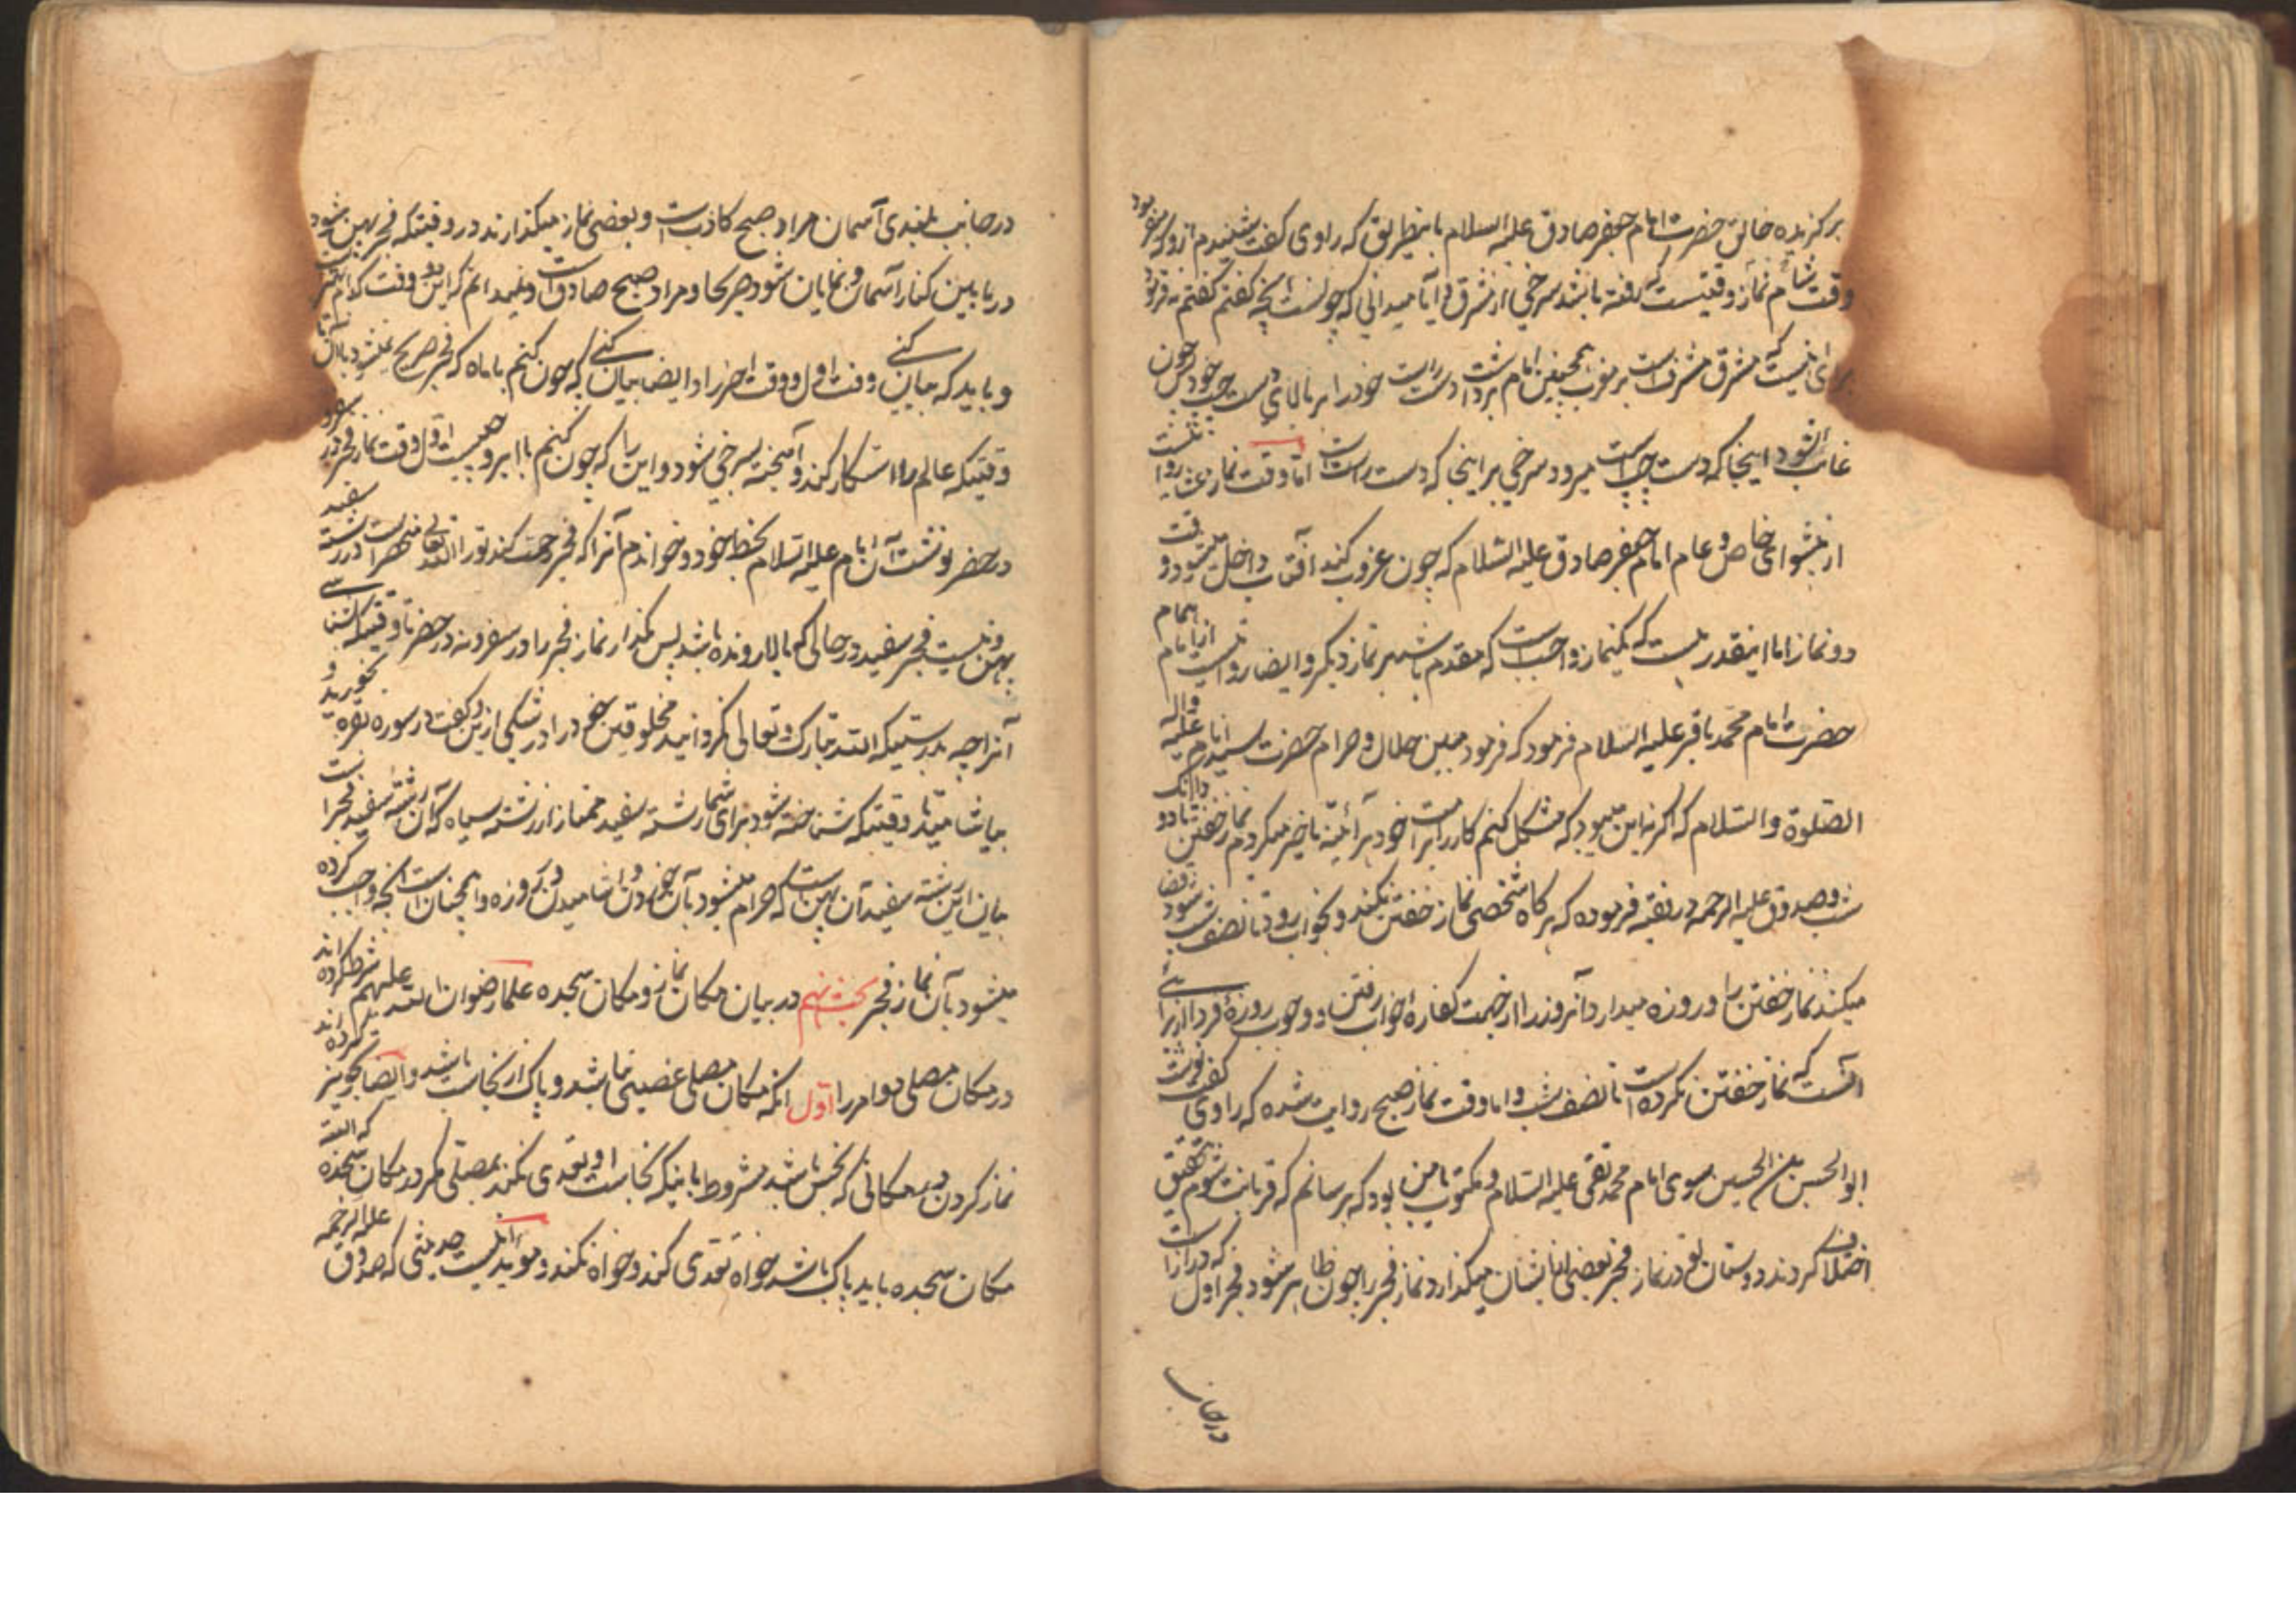 برگزیده خالق حضرت امام جعفر صادق علیه السلام باینطریق که راوی گفت شنیدم ازو که میفرمود
وقت شام نماز وقتیست که رفته باشد سرخی از مشرق آیا میدانی که چونست گفتم نه فرمود
برای اینست که مشرق مشرفست بر مغرب همچنین امام برداشت دست راست خود را بر بالای دست چپ خود پس چون
غایب شود اینجا که دست چپ است میرود سرخی بر اینجا که دست راست است اما وقت نماز خفتن
از پیشوای خاص و عام امام جعفر صادق علیه السلام که چون غروب کند آفتاب داخل میشود وقت
دو نماز اما اینقدر هست که یکنماز واجب است که مقدم باشد بر نماز دیگر و ایضا روایت از امام
حضرت امام محمد باقر علیه السلام فرمود که فرمود مبین حلال و حرام حضرت سید انام علیه و آله
الصلوة والسلام که اگر نه این میبود که مشکل کنم کار را بر امت خود هر آئینه تاخیر میکردم نماز خفتن را تا دو دانگ
شب و صدوق علیه الرحمه در فقیه فرموده که هر گاه شخصی نماز خفتن نکند و بخواب رود تا نصف شب شود قضا
میکند نماز خفتن را و روزه میدارد آنروز را از جهت کفاره خواب رفتن و وجوب روزه فردا از برای
آنست که نماز خفتن نکرده است تا نصف شب و اما وقت نماز صبح روایت شده که راوی گفت نوشت
ابو الحسن بن الحسین بسوی امام محمد تقی علیه السلام و مکتوب با من بود که برسانم که قربانت شوم بتحقیق
اختلاف کردند دوستان تو در نماز فجر بعضی ایشان میگذارد نماز فجر را چون ظاهر شود فجر اول که دراز است
در جانب
در جانب بلندی آسمان مراد صبح کاذبست و بعضی نماز میگذارند در وقتیکه فجر پهن شود
در پایین کنار آسمان و نمایان شود هر جا و مراد صبح صادق است و نمیدانم که این دو وقت کدام بهتر است
و باید که بیان کنی وقت اول و وقت آخر را و ایضا بیان کنی که چون کنم با ماه که فجر صریح نمیشود با آن تا
وقتیکه عالم را اشکار کند و آمیخته بسرخی شود و این را که چون کنم با ابر و چیست اول وقت نماز فجر در سفر
در حضر نوشت آن امام علیه السلام بخط خود و خواندم آنرا که فجر رحمت کند تو را الله تعالی رشته سفید
پهن و نیست فجر سفید در حالی که بالا رونده باشد پس مگذار نماز فجر را در سفر و نه در حضر تا وقتیکه شناسی
آنرا چه بدرستیکه الله تبارک و تعالی نگردانید مخلوقین خود را در شکی ازین و گفت در سوره بقره بخورید و
بیاشامید تا وقتیکه شناخته شود برای شما رشته سفید ممتاز از رشته سیاه که آن رشته سفید فجر است
بیان این رشته سفید آن پهن است که حرام میشود بآن خوردن و اشامیدن در روزه و همچنان است آنچه واجب کرده
میشود بآن نماز فجر بحث نهم در بیان مکان نماز و مکان سجده علماء رضوان الله علیهم شرط کرده اند
در مکان مصلی دو امر را اول آنکه مکان مصلی غصبی نباشد و پاک از نجاست باشد و ایضا تجویز کرده اند
نماز کردن در مکانی که نجس باشد مشروط باینکه نجاست او تعدی نکند بمصلی مگر در مکان سجده که البته
مکان سجده باید پاک باشد خواه تعدی کند و خواه نکند و مؤید اینست حدیثی که صدوق علیه الرحمه